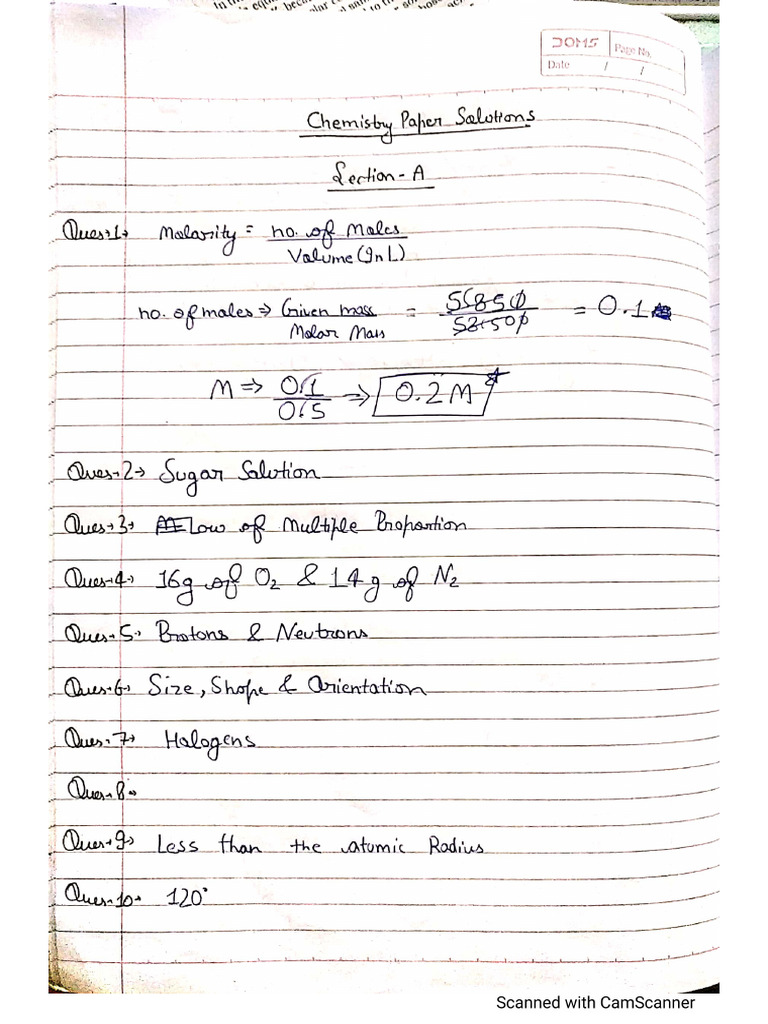 DOMS
Page No.
Date / /
Chemistry Paper Solutions
Section - A
Ques→1→ Molarity = no. of Moles
Volume (In L)
no. of moles ⇒ Given mass = = 0.1
Molar Mass
M ⇒ 0.1 ⇒ 0.2 M
0.5
Ques→2→ Sugar Solution
Ques→3→ Law of Multiple Proportion
Ques→4→ 16g of O2 & 14g of N2
Ques→5→ Protons & Neutrons
Ques→6→ Size, Shape & Orientation
Ques→7→ Halogens
Ques→8→
Ques→9→ Less than the atomic Radius
Ques→10→ 120°
Scanned with CamScanner